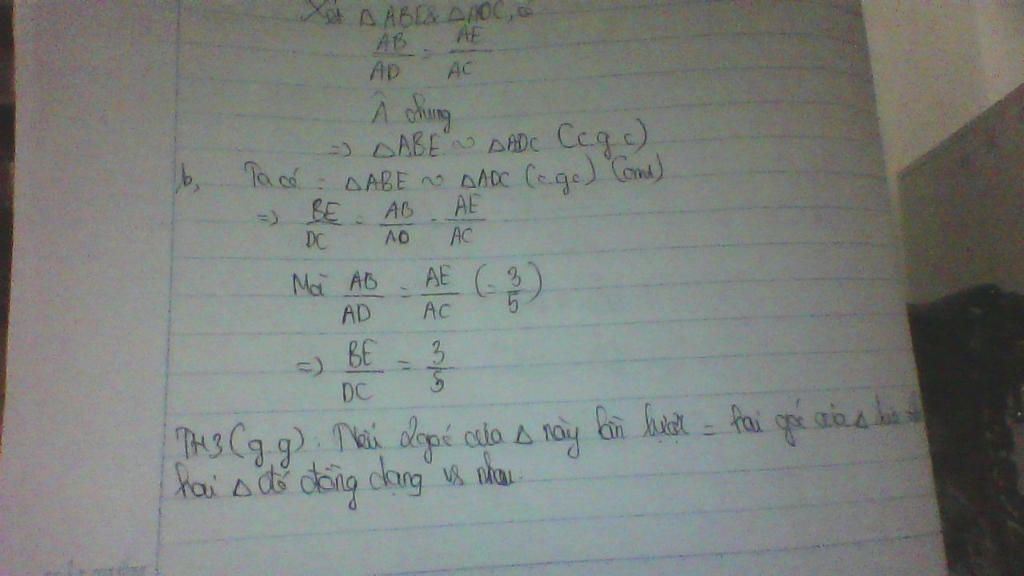 Xét △ABE & △ADC, có
AB/AD = AE/AC
Â chung
=> △ABE ~ △ADC (c.g.c)
b, Ta có: △ABE ~ △ADC (c.g.c) (cmt)
=> BE/DC = AB/AD = AE/AC
Mà AB/AD = AE/AC (= 3/5)
=> BE/DC = 3/5
TH3 (g.g). Nếu 2 góc của △ này lần lượt = hai góc của △
hai △ đó đồng dạng vs nhau.